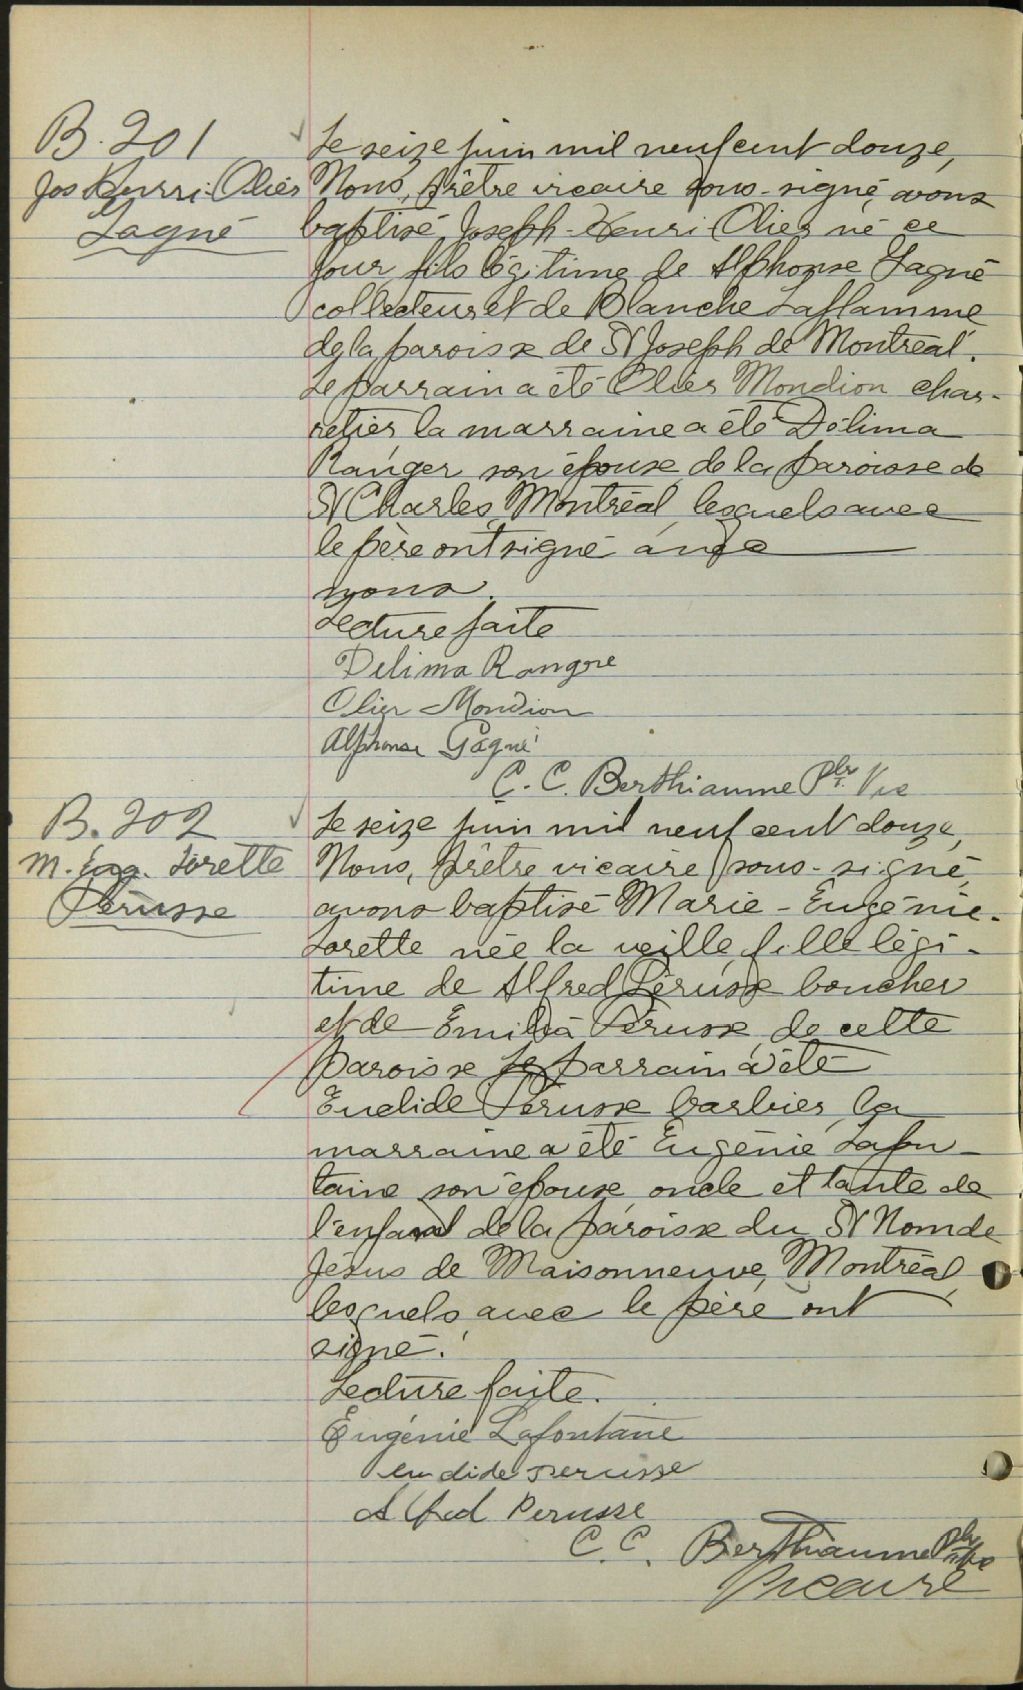 B. 201
Jos Henri Olier
Gagné
Le seize juin mil neuf cent douze,
Nous, prêtre vicaire sous-signé, avons
baptisé, Joseph-Henri-Olier né ce
jour fils légitime de Alphonse Gagné
collecteur et de Blanche Laflamme
de la paroisse de St Joseph de Montréal.
Le parrain a été Olier Mondion char-
retier la marraine a été Délima
Ranger son épouse de la paroisse de
St Charles, Montréal, lesquels avec
le père ont signé avec
nous.
Lecture faite
Delima Rangre
Olier Mondion
Alphonse Gagné
C. C. Berthiaume Ptr. Vic
B. 202
M. Eug. Lorette
Pérusse
Le seize juin mil neuf cent douze,
Nous, prêtre vicaire sous-signé,
avons baptisé Marie-Eugénie-
Lorette née la veille, fille légi-
time de Alfred Pérusse boucher
et de Emilia Pérusse, de cette
paroisse Le parrain a été
Euclide Pérusse barbier, la
marraine a été Eugénie Lafon-
taine son épouse, oncle et tante de
l'enfant de la paroisse du St Nom de
Jésus de Maisonneuve, Montréal,
lesquels avec le père ont
signé.
Lecture faite.
Eugénie Lafontaine
Euclide Perusse
Alfred Perusse
C. C. Berthiaume Ptr
Vicaire